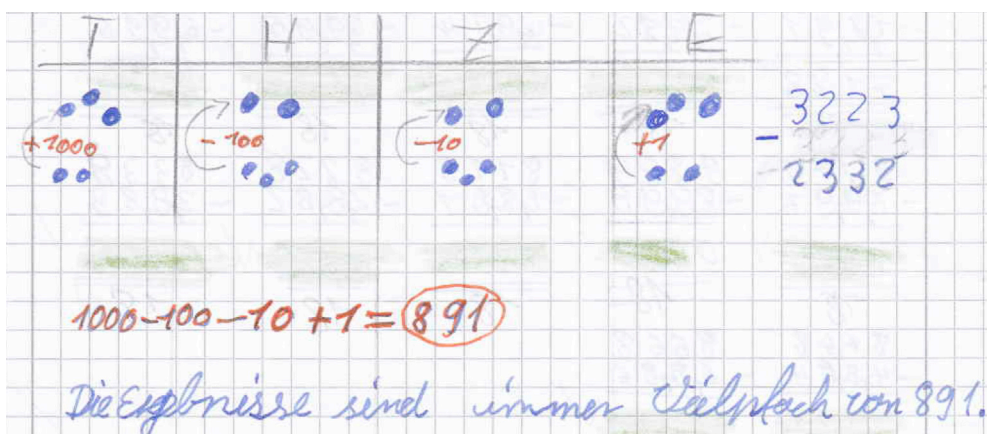 T H Z E
3223
+1000 -100 -10 +1 -
2332
1000-100-10+1=891
Die Ergebnisse sind immer Vielpfach von 891.